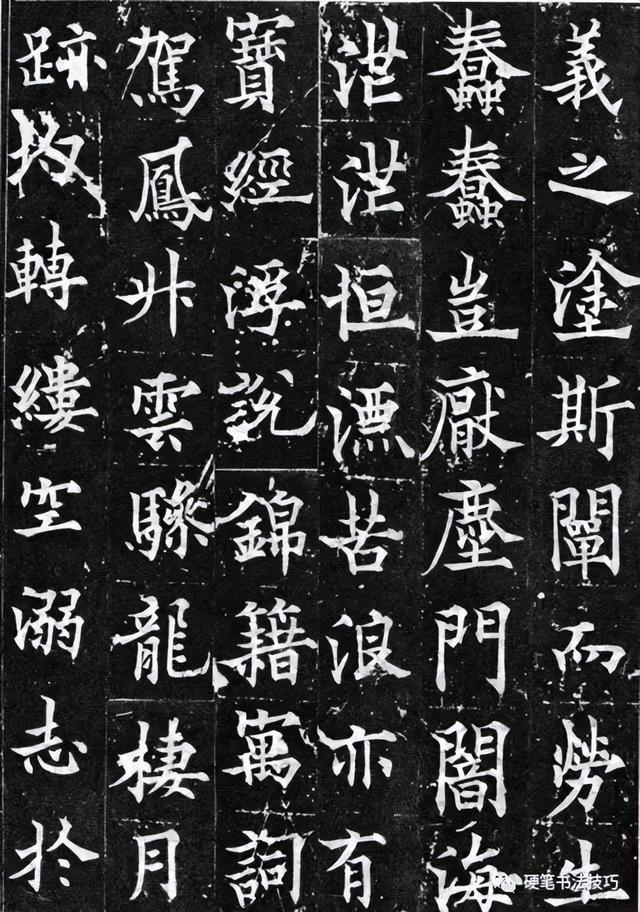 義之塗斯闡而勞生
蠢蠢豈厭塵門闇海
茫茫恒漂苦浪亦有
寶經浮說錦籍寓詞
駕鳳升雲驂龍棲月
跡均轉縷空溺志於
硬笔书法技巧